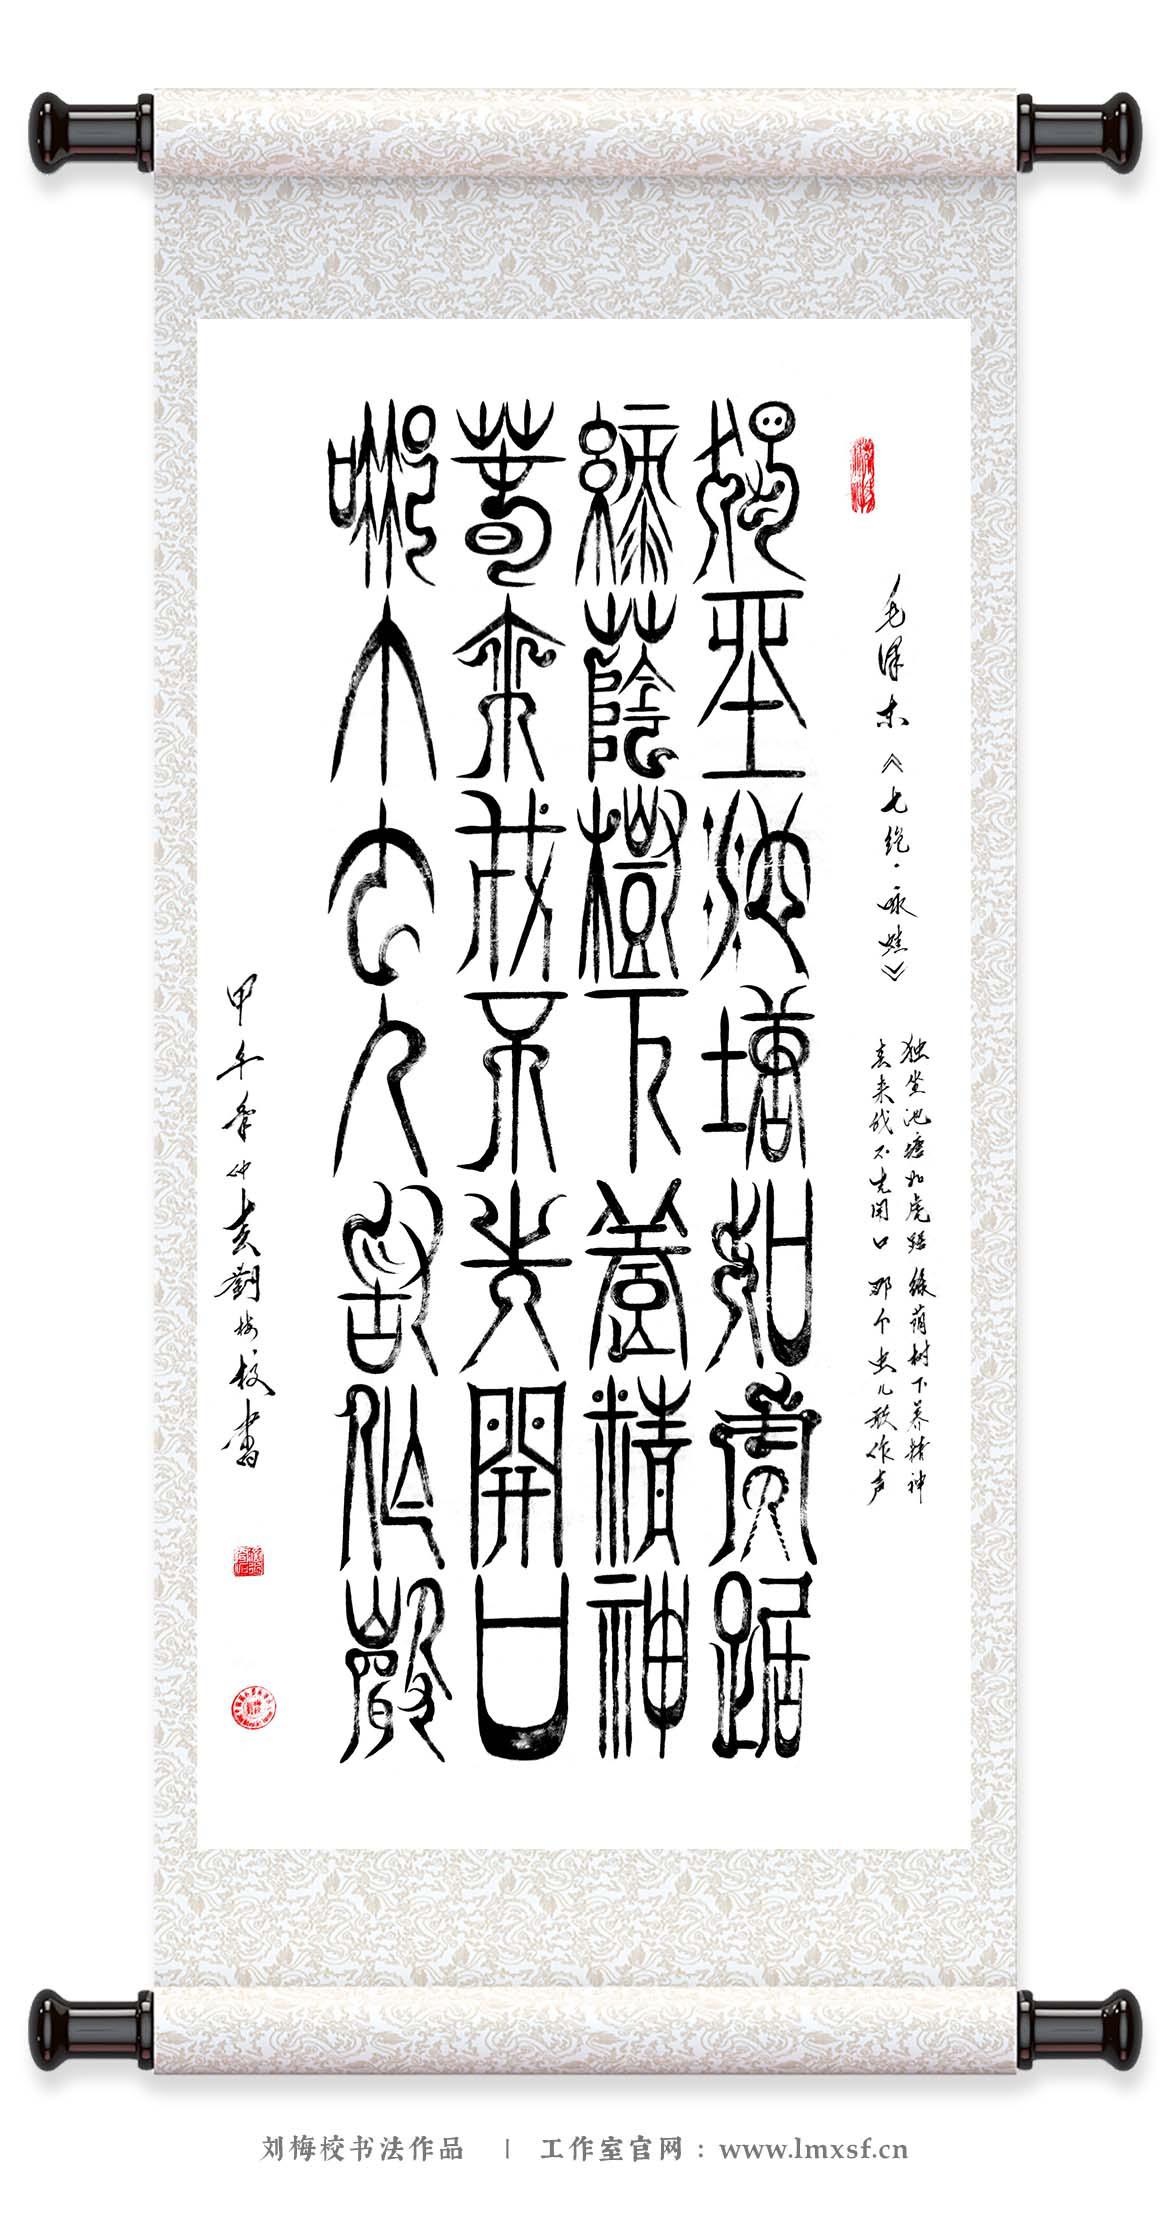 毛泽东《七绝·咏蛙》
独坐池塘如虎踞 绿荫树下养精神
春来我不先开口 那个虫儿敢作声
獨坐池塘如虎踞
綠蔭樹下養精神
春來我不先開口
哪个虫儿敢作聲
甲午年仲春劉梅校書
刘梅校书法作品 | 工作室官网：www.lmxsf.cn